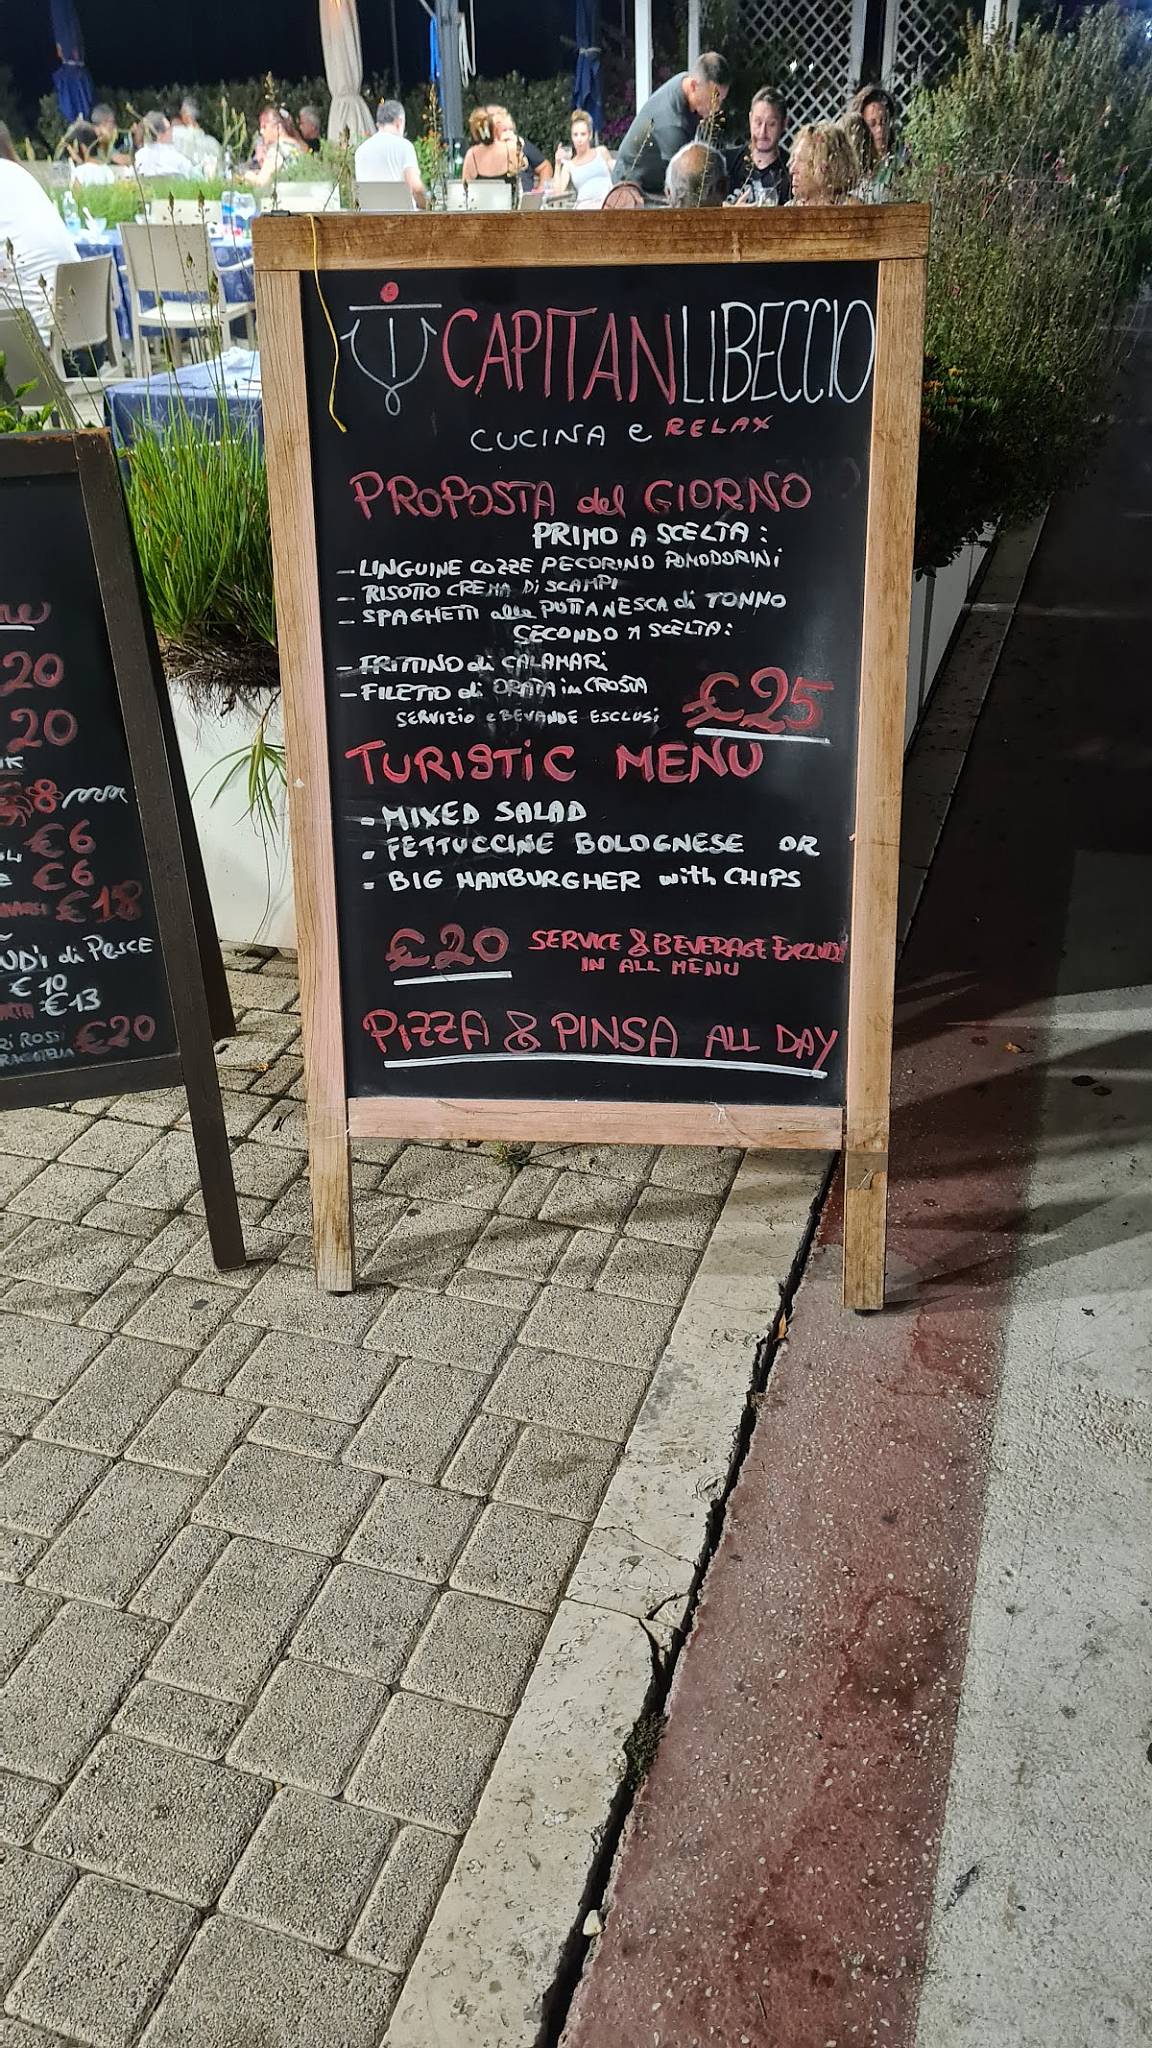 CAPITANLIBECCIO
CUCINA e RELAX
PROPOSTA del GIORNO
PRIMO A SCELTA:
- LINGUINE COZZE PECORINO POMODORINI
- RISOTTO CREMA Di SCAMPI
- SPAGHETTI alla PUTTANESCA di TONNO
SECONDO A SCELTA:
- FRITTINO di CALAMARi
- FILETTO di ORATA in CROSTA
€25
SERVIZIO e BEVANDE ESCLUSi
TURISTiC MENU
- MIXED SALAD
- FETTUCCINE BOLOGNESE OR
- BIG HAMBURGHER with CHIPS
€20 SERVICE & BEVERAGE
IN ALL MENU
PiZZA & PINSA ALL DAY
20
20
€6
€6
€18
di PESCE
€10
€13
ROSSI
€20